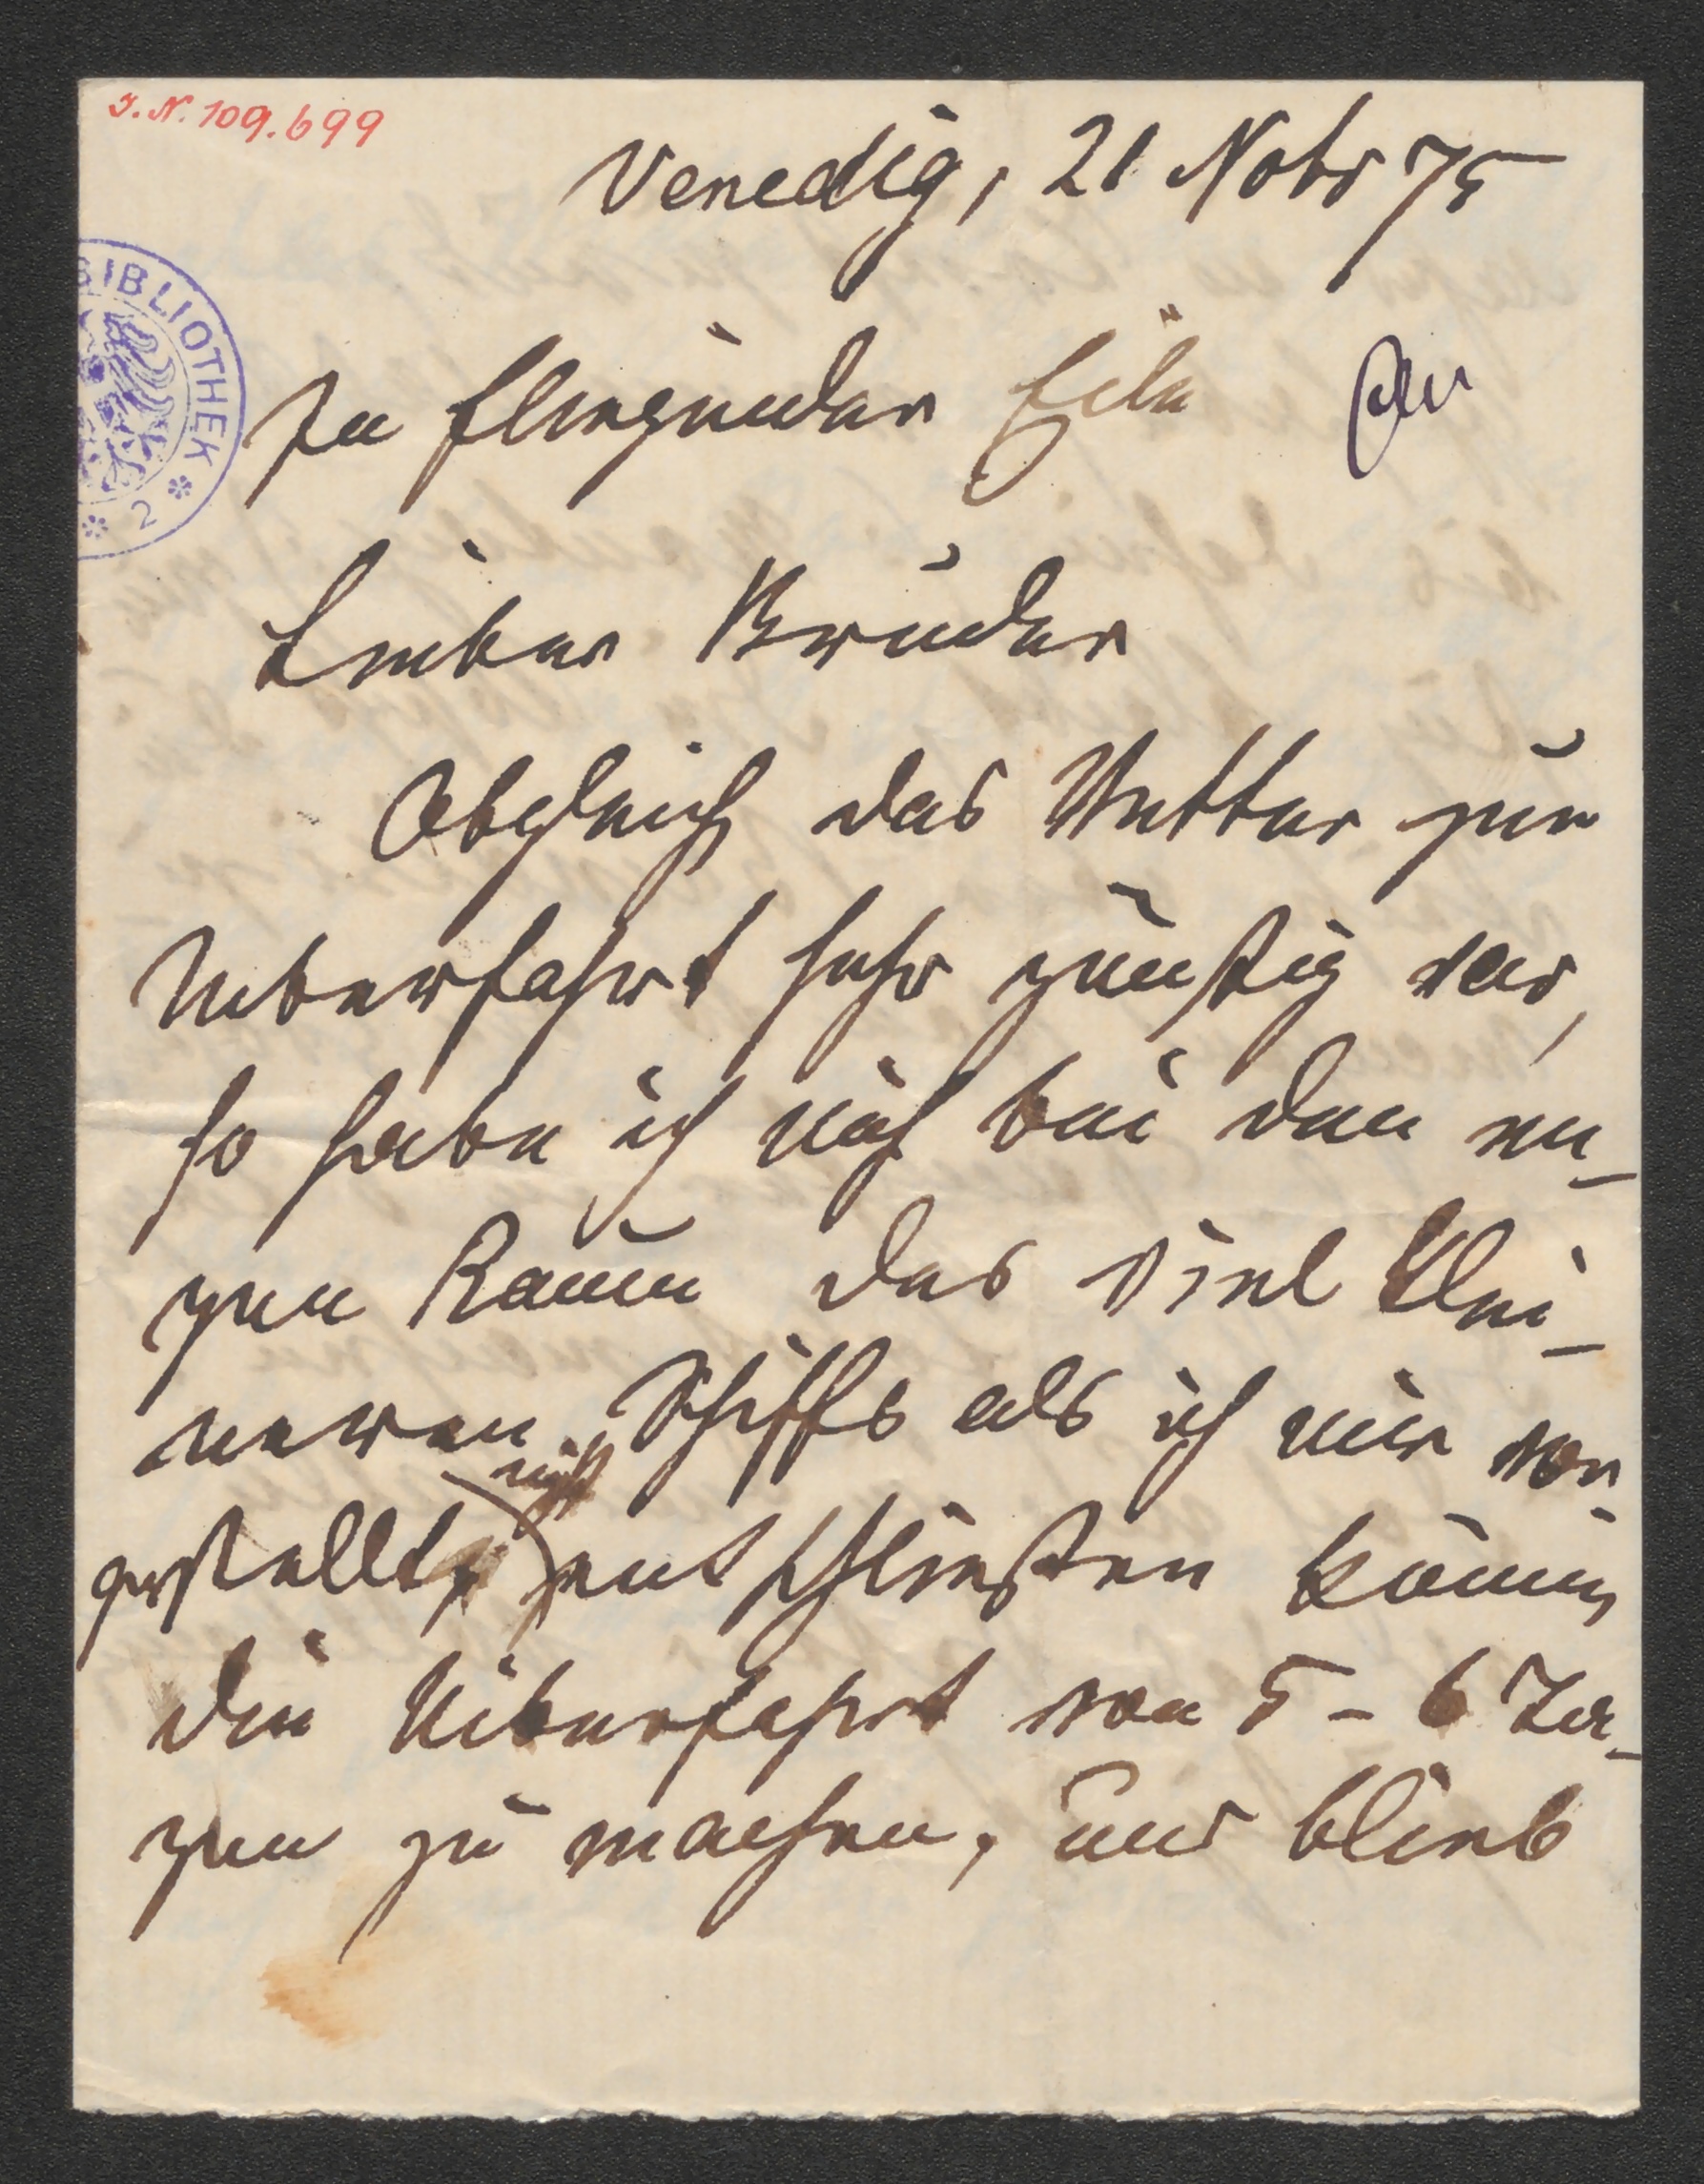 I.N. 109.699
Venedig, 21 Nobr 75
BIBLIOTHEK
* 2 *
In fliegender Eile
Lieber Bruder
Obgleich das Wetter zur
Ueberfahrt sehr günstig war,
so habe ich mich bei dem en-
gen Raum des viel klei-
neren Schiffs als ich mir vor-
nicht
gestellt, entschließen können
die Ueberfahrt von 5-6 Ta-
gen zu machen, und blieb